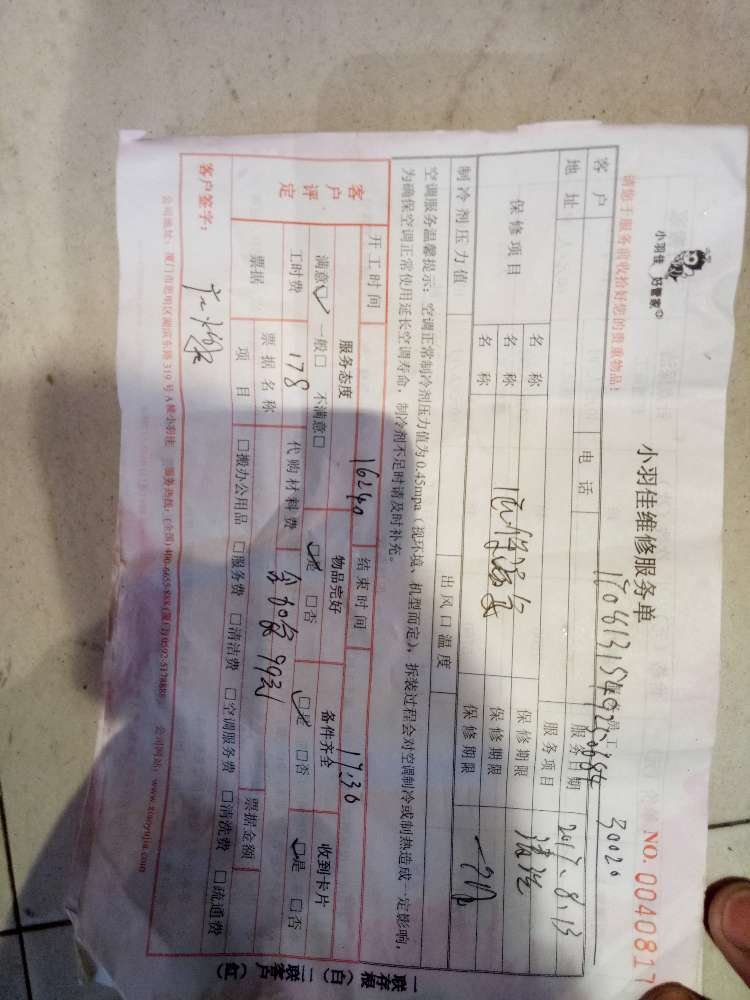 小羽佳 好管家
小羽佳维修服务单
NO. 0040817
请您于服务前收拾好您的贵重物品!
员工 30020
客户 电话 服务日期 2017.8.13
地址 服务项目 清洗
保修项目 名称 保修期限
名称 保修期限
名称 保修期限
制冷剂压力值 出风口温度
空调服务温馨提示:空调正常制冷剂压力值为0.45mpa(视环境、机型而定),拆装过程会对空调制冷或制热造成一定影响,
为确保空调正常使用延长空调寿命,制冷剂不足时请及时补充。
开工时间 16:40 结束时间 17:30
客户评定 服务态度 物品完好 备件齐全 收到卡片
满意□ 一般□ 不满意□ □是 □否 □是 □否 □是 □否
工时费 178 代购材料费
票据 票据名称 票据金额
项目 □搬办公用品 □服务费 □清洁费 □空调服务费 □清洗费 □疏通费
客户签字:
公司地址:厦门市思明区湖滨东路319号A楼小羽佳 服务热线:(全国)400-6655-858 (厦门)0592-5178888 公司网站:www.xiaoyujia.com
一联存根(白) 二联客户(红)